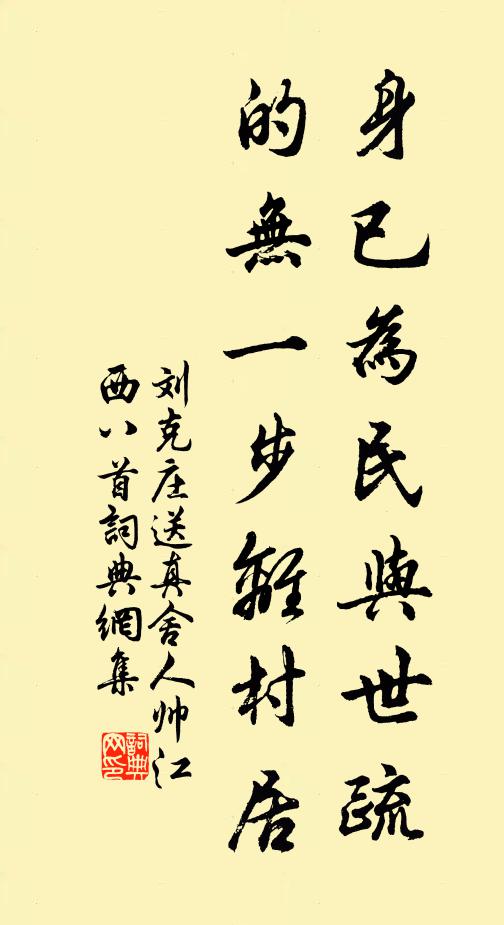 身已為民與世疏
的無一步離村居
刘克庄送真舍人帅江
西八首詞典網集
詞典
网印